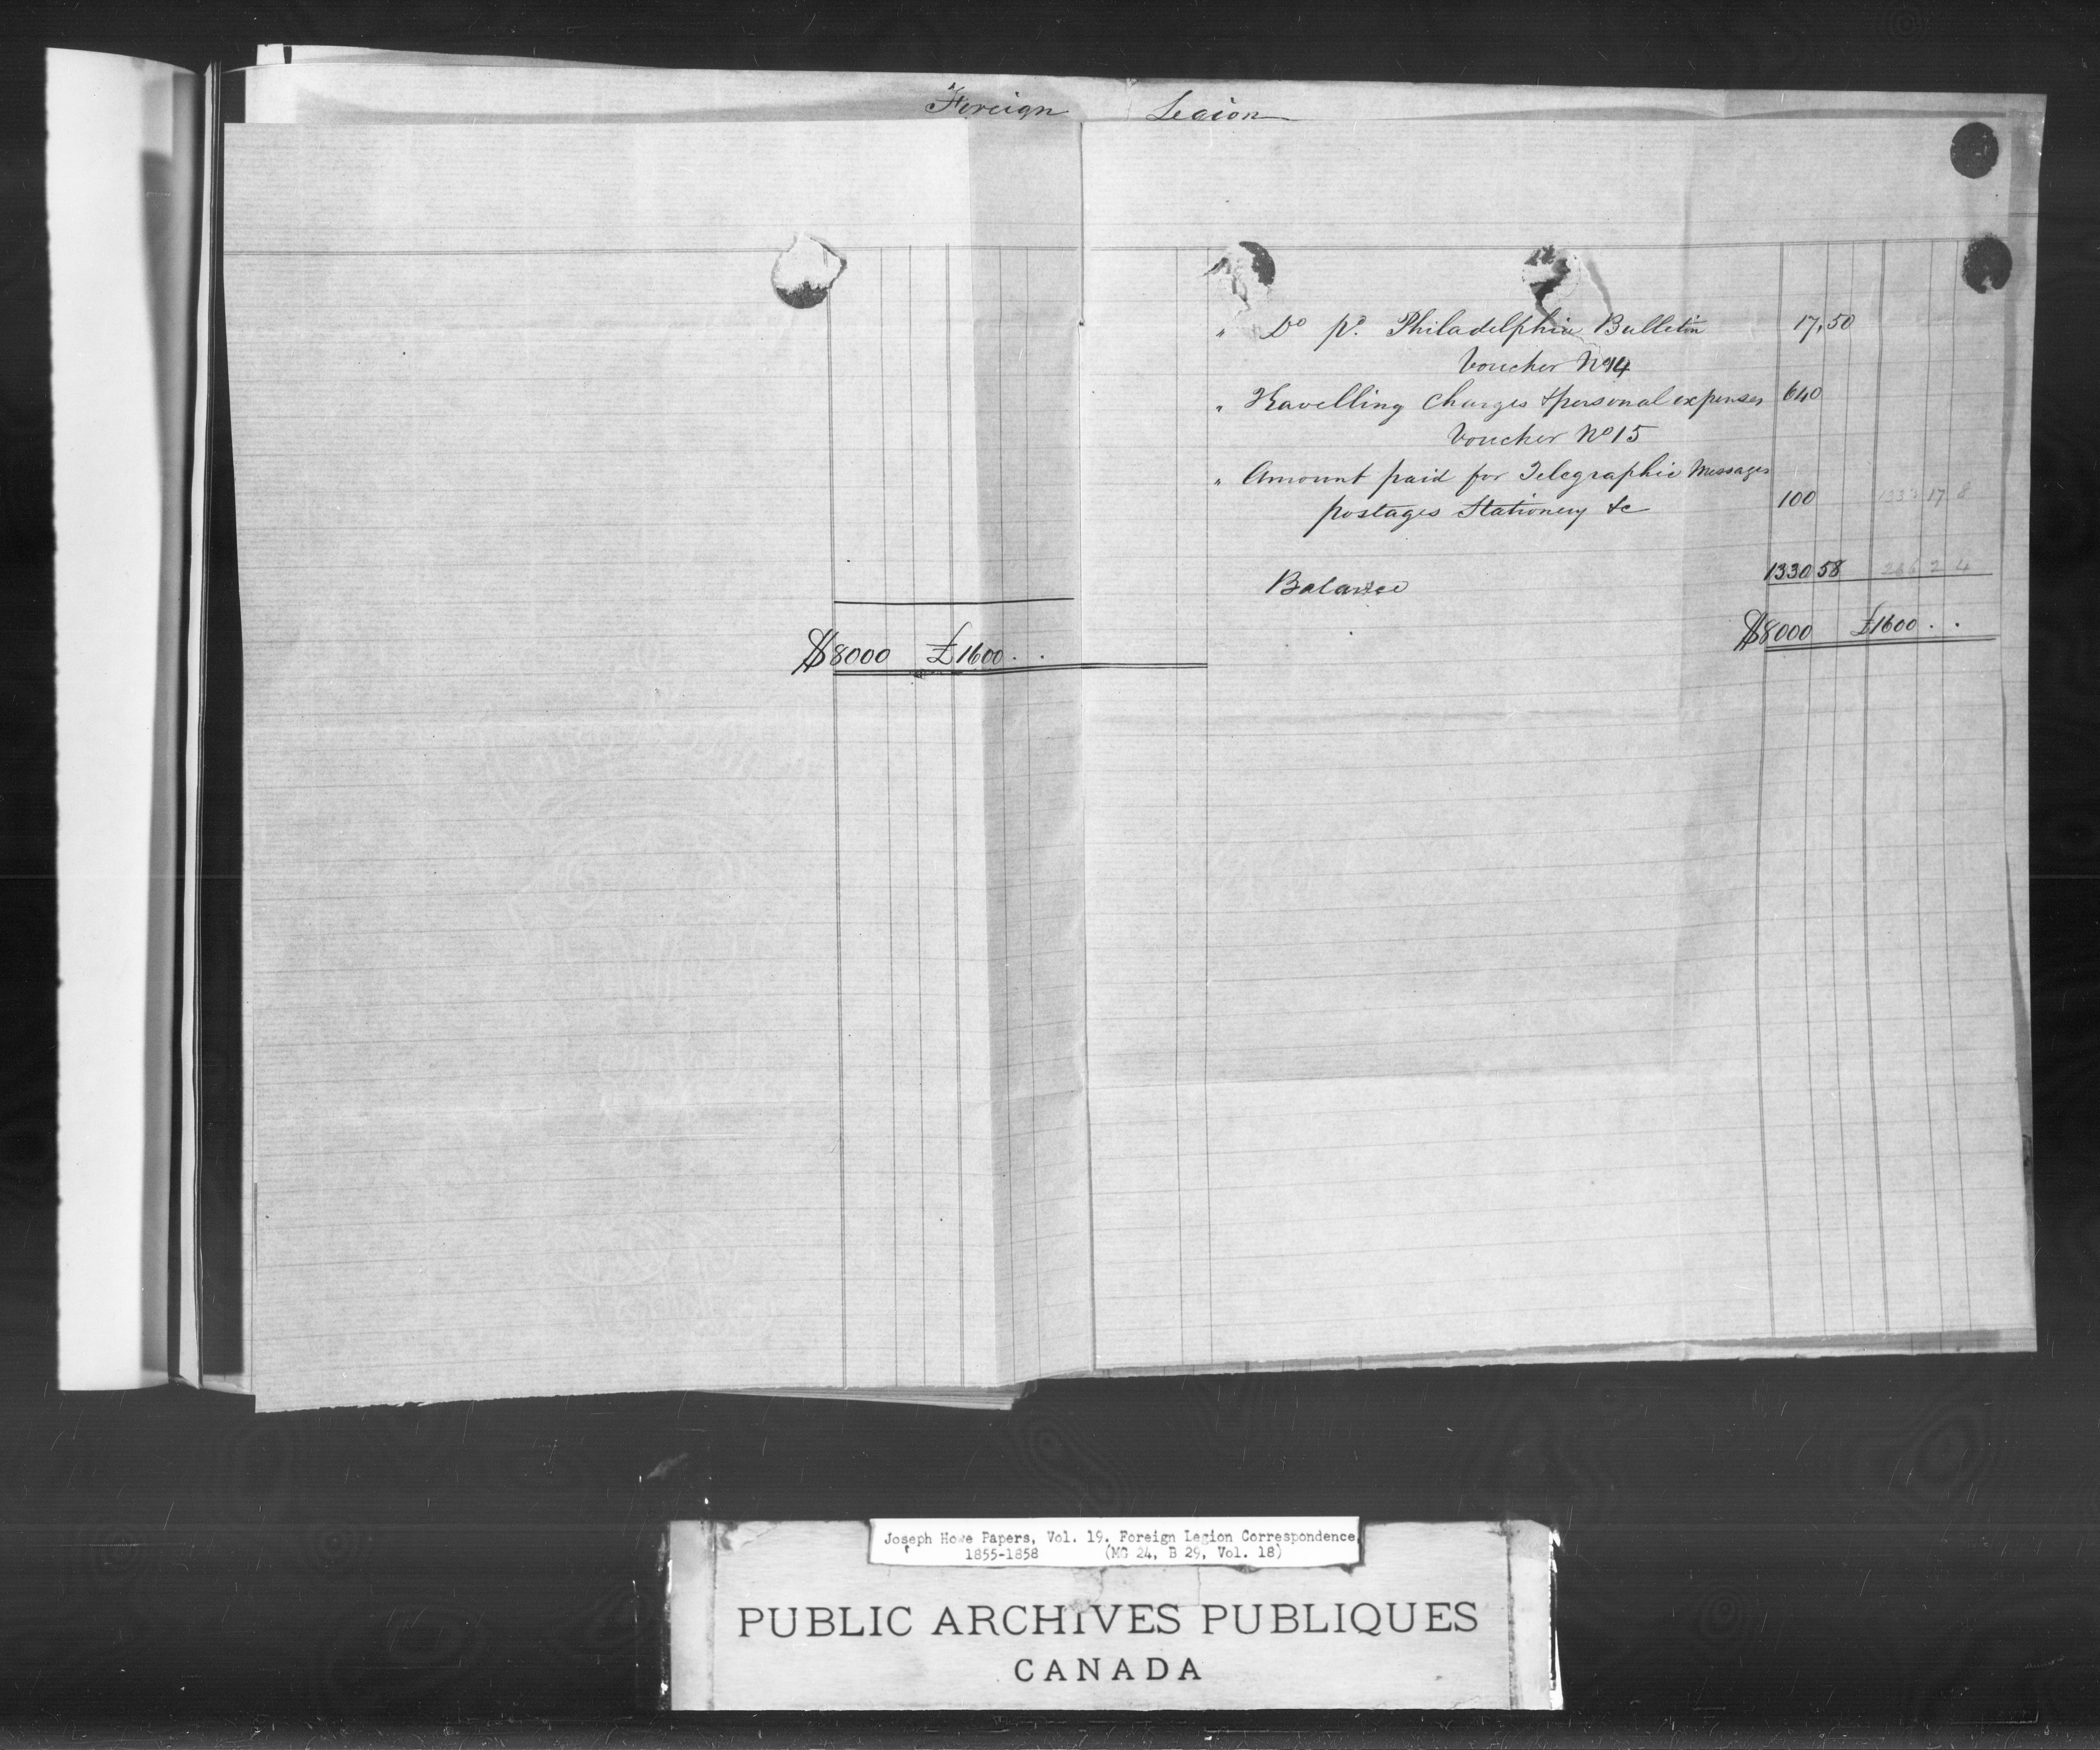 Foreign Legion
$8000 £1600 . .
" Do pd. Philadelphia Bulletin 17,50
Voucher No 14
" Travelling Charges & personal expenses 640
Voucher No 15
" Amount paid for Telegraphic Messages
postages Stationery &c 100 1333 17 8
Balance 1330 58 266 2 4
$8000 £1600 . .
Joseph Howe Papers, Vol. 19. Foreign Legion Correspondence,
1855-1858 (MG 24, B 29, Vol. 18)
PUBLIC ARCHIVES PUBLIQUES
CANADA